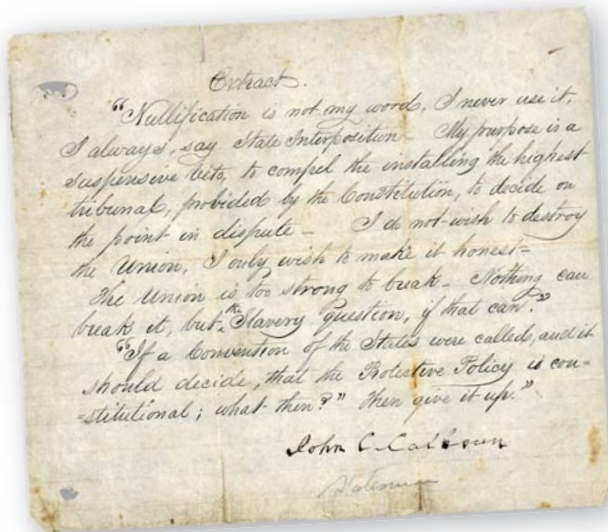 Extract.
"Nullification is not my word, I never use it,
I always, say State Interposition. My purpose is a
suspensive veto, to compel the installing the highest
tribunal, provided by the Constitution, to decide on
the point in dispute - I do not wish to destroy
the Union, I only wish to make it honest-
The Union is too strong to break - Nothing can
break it, but the Slavery question, if that can."
"If a Convention of the States were called, and it
should decide, that the Protective Policy is con=
=stitutional; what then?" Then give it up."
John C. Calhoun
Statesman